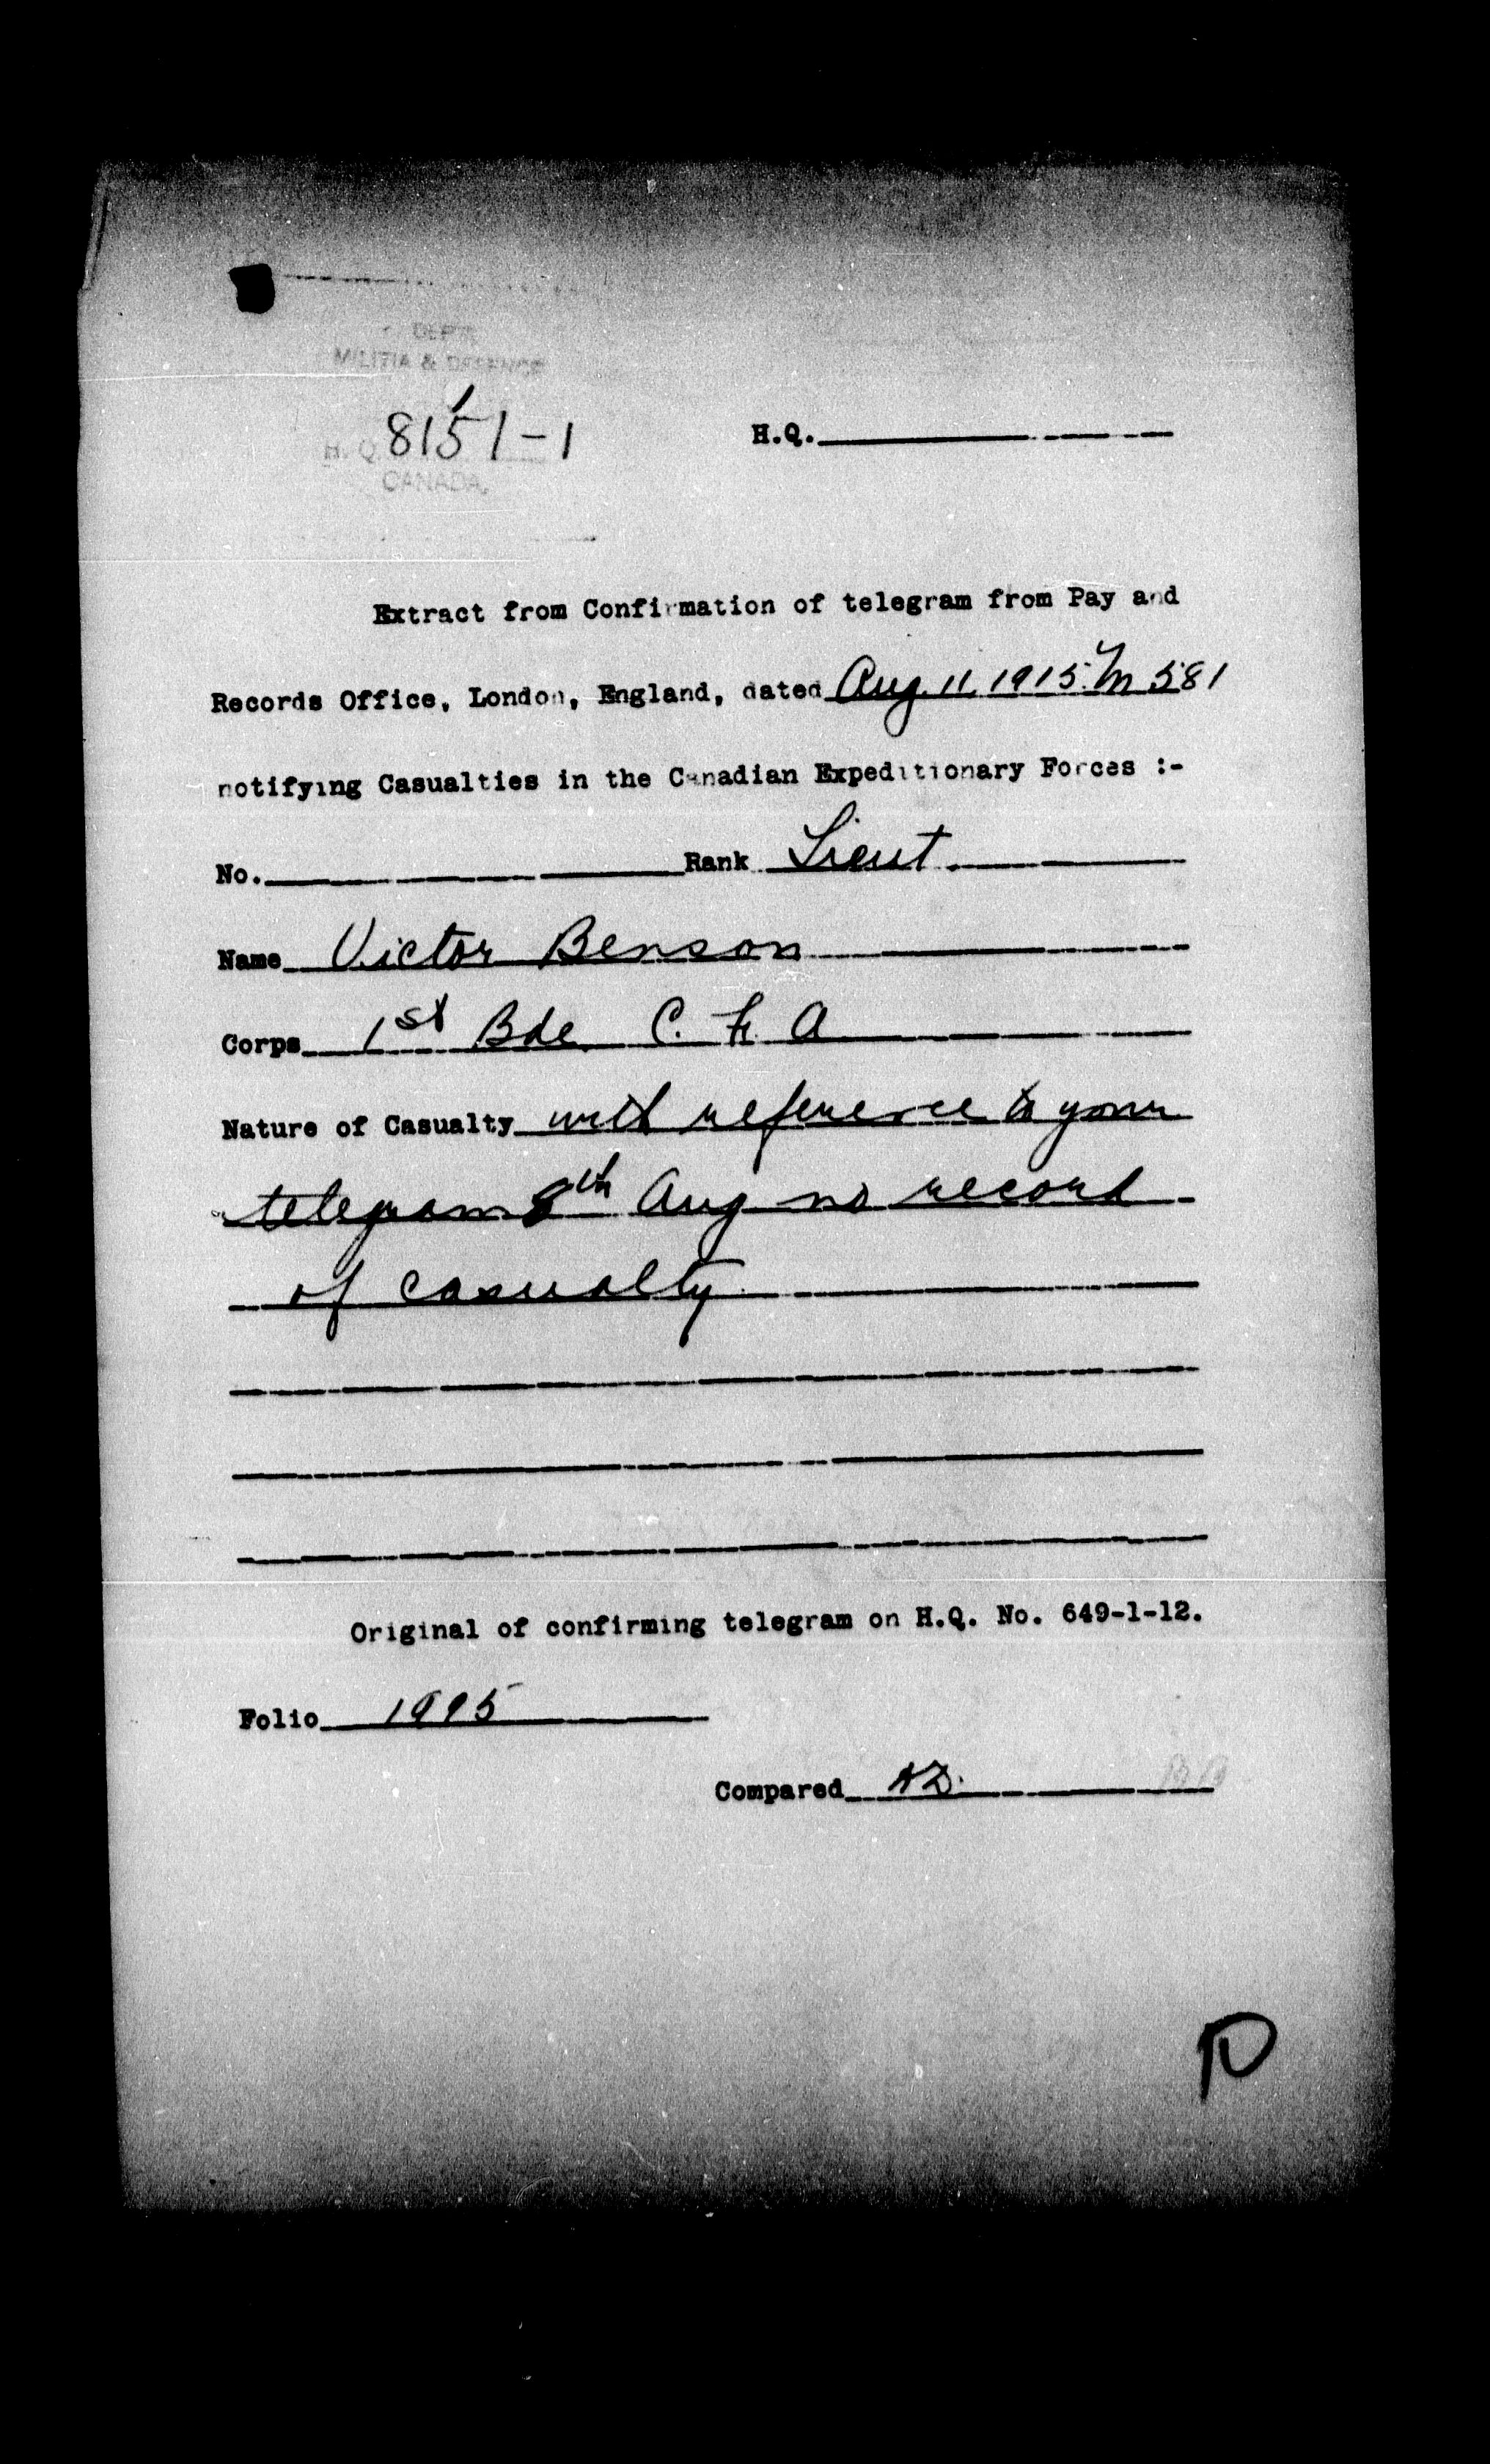 DEPT.
MILITIA & DEFENCE
H.Q. 8151-1
H.Q.
CANADA.
Extract from Confirmation of telegram from Pay and
Records Office, London, England, dated Aug. 11, 1915. M 581
notifying Casualties in the Canadian Expeditionary Forces :-
No. Rank Lieut.
Name Victor Benson
Corps 1st Bde. C. F. A
Nature of Casualty with reference to your
telegram 8th Aug no record
of casualty.
Original of confirming telegram on H.Q. No. 649-1-12.
Folio 1995
Compared